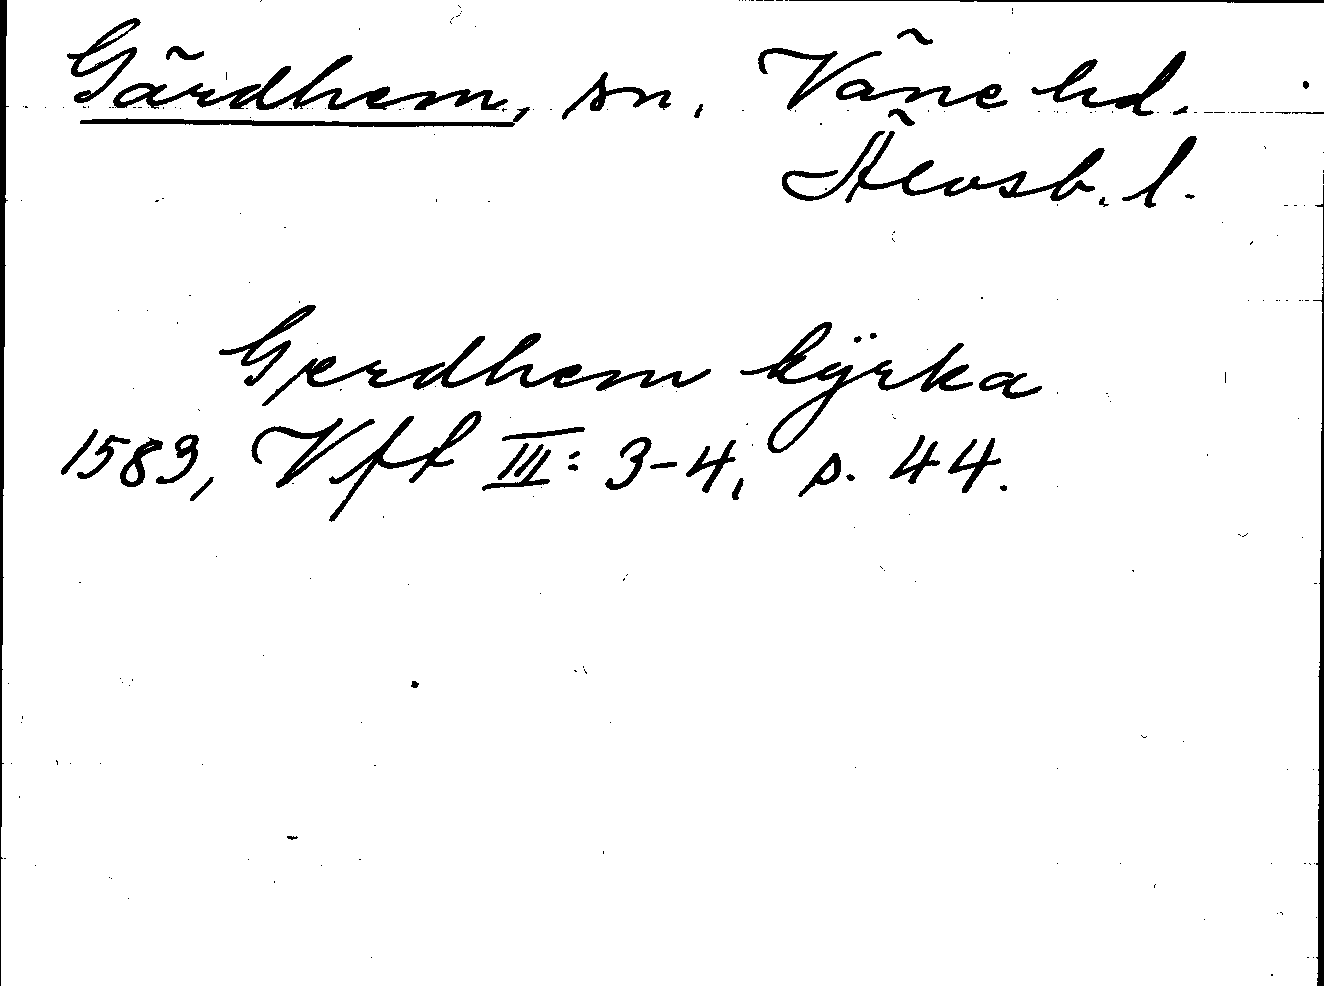 Gärdhem, sn. Väne hd.
Älvsb. l.
Gerdhem kÿrka
1583, Vft III: 3-4, s. 44.